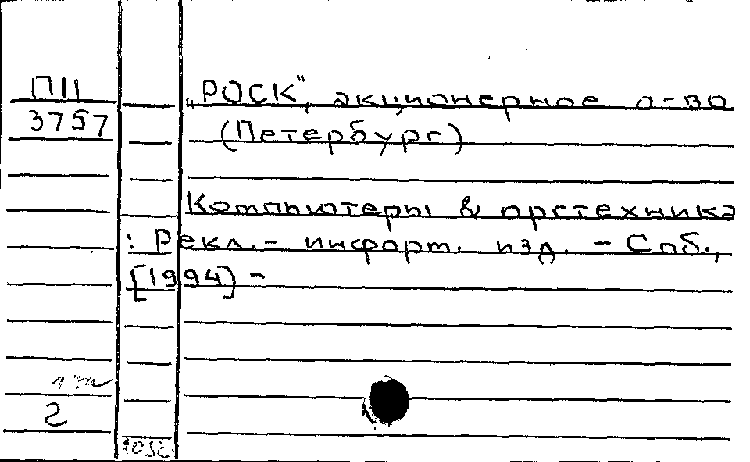 П11
3757
„РОСК", акционерное о-во
(Петербург)
Компьютеры & оргтехника
: Рекл.- информ. изд. - Спб.,
[1994] -
2